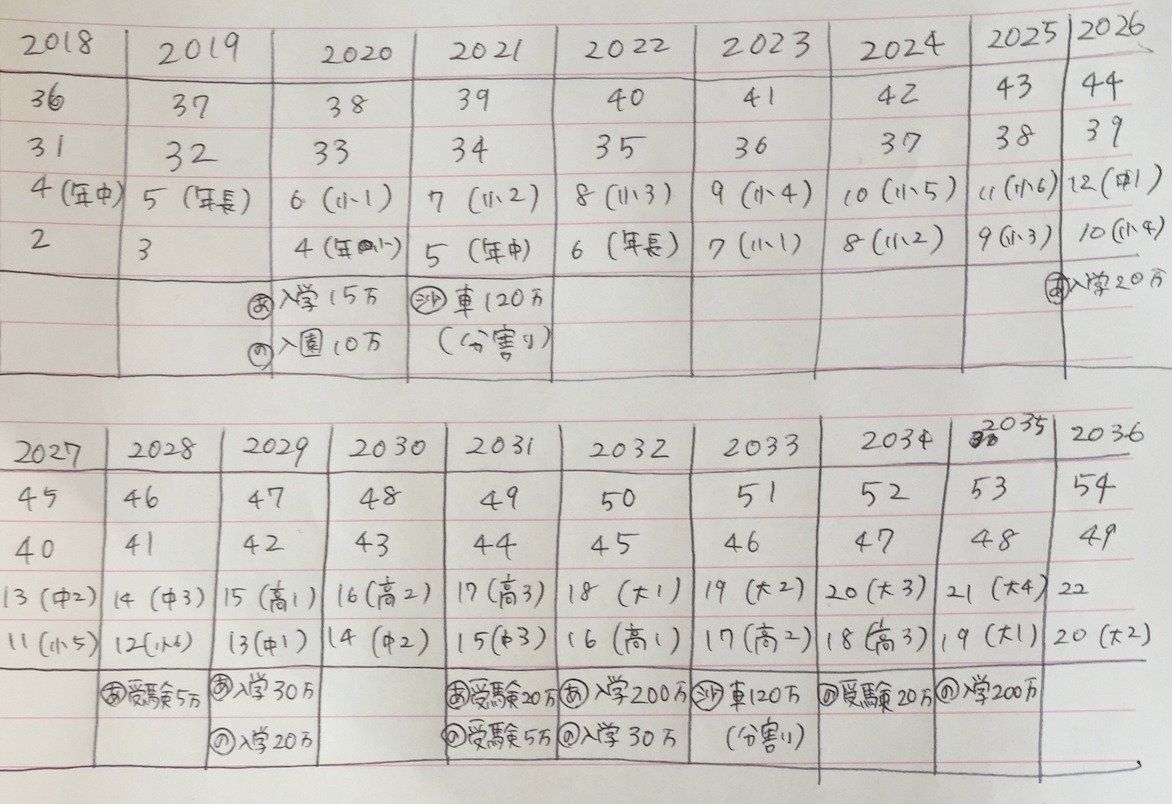 2018 2019 2020 2021 2022 2023 2024 2025 2026
36 37 38 39 40 41 42 43 44
31 32 33 34 35 36 37 38 39
4(年中) 5(年長) 6(小1) 7(小2) 8(小3) 9(小4) 10(小5) 11(小6) 12(中1)
2 3 4(年小) 5(年中) 6(年長) 7(小1) 8(小2) 9(小3) 10(小4)
あ入学15万 沙車120万 あ入学20万
の入園10万 (分割り)
2027 2028 2029 2030 2031 2032 2033 2034 2035 2036
45 46 47 48 49 50 51 52 53 54
40 41 42 43 44 45 46 47 48 49
13(中2) 14(中3) 15(高1) 16(高2) 17(高3) 18(大1) 19(大2) 20(大3) 21(大4) 22
11(小5) 12(小6) 13(中1) 14(中2) 15(中3) 16(高1) 17(高2) 18(高3) 19(大1) 20(大2)
あ受験5万 あ入学30万 あ受験20万 あ入学200万 沙車120万 の受験20万 の入学200万
の入学20万 の受験5万 の入学30万 (分割り)